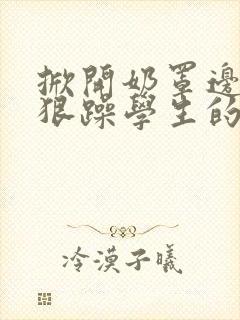 掀開奶罩邊
狠躁學生的
冷漠子曦